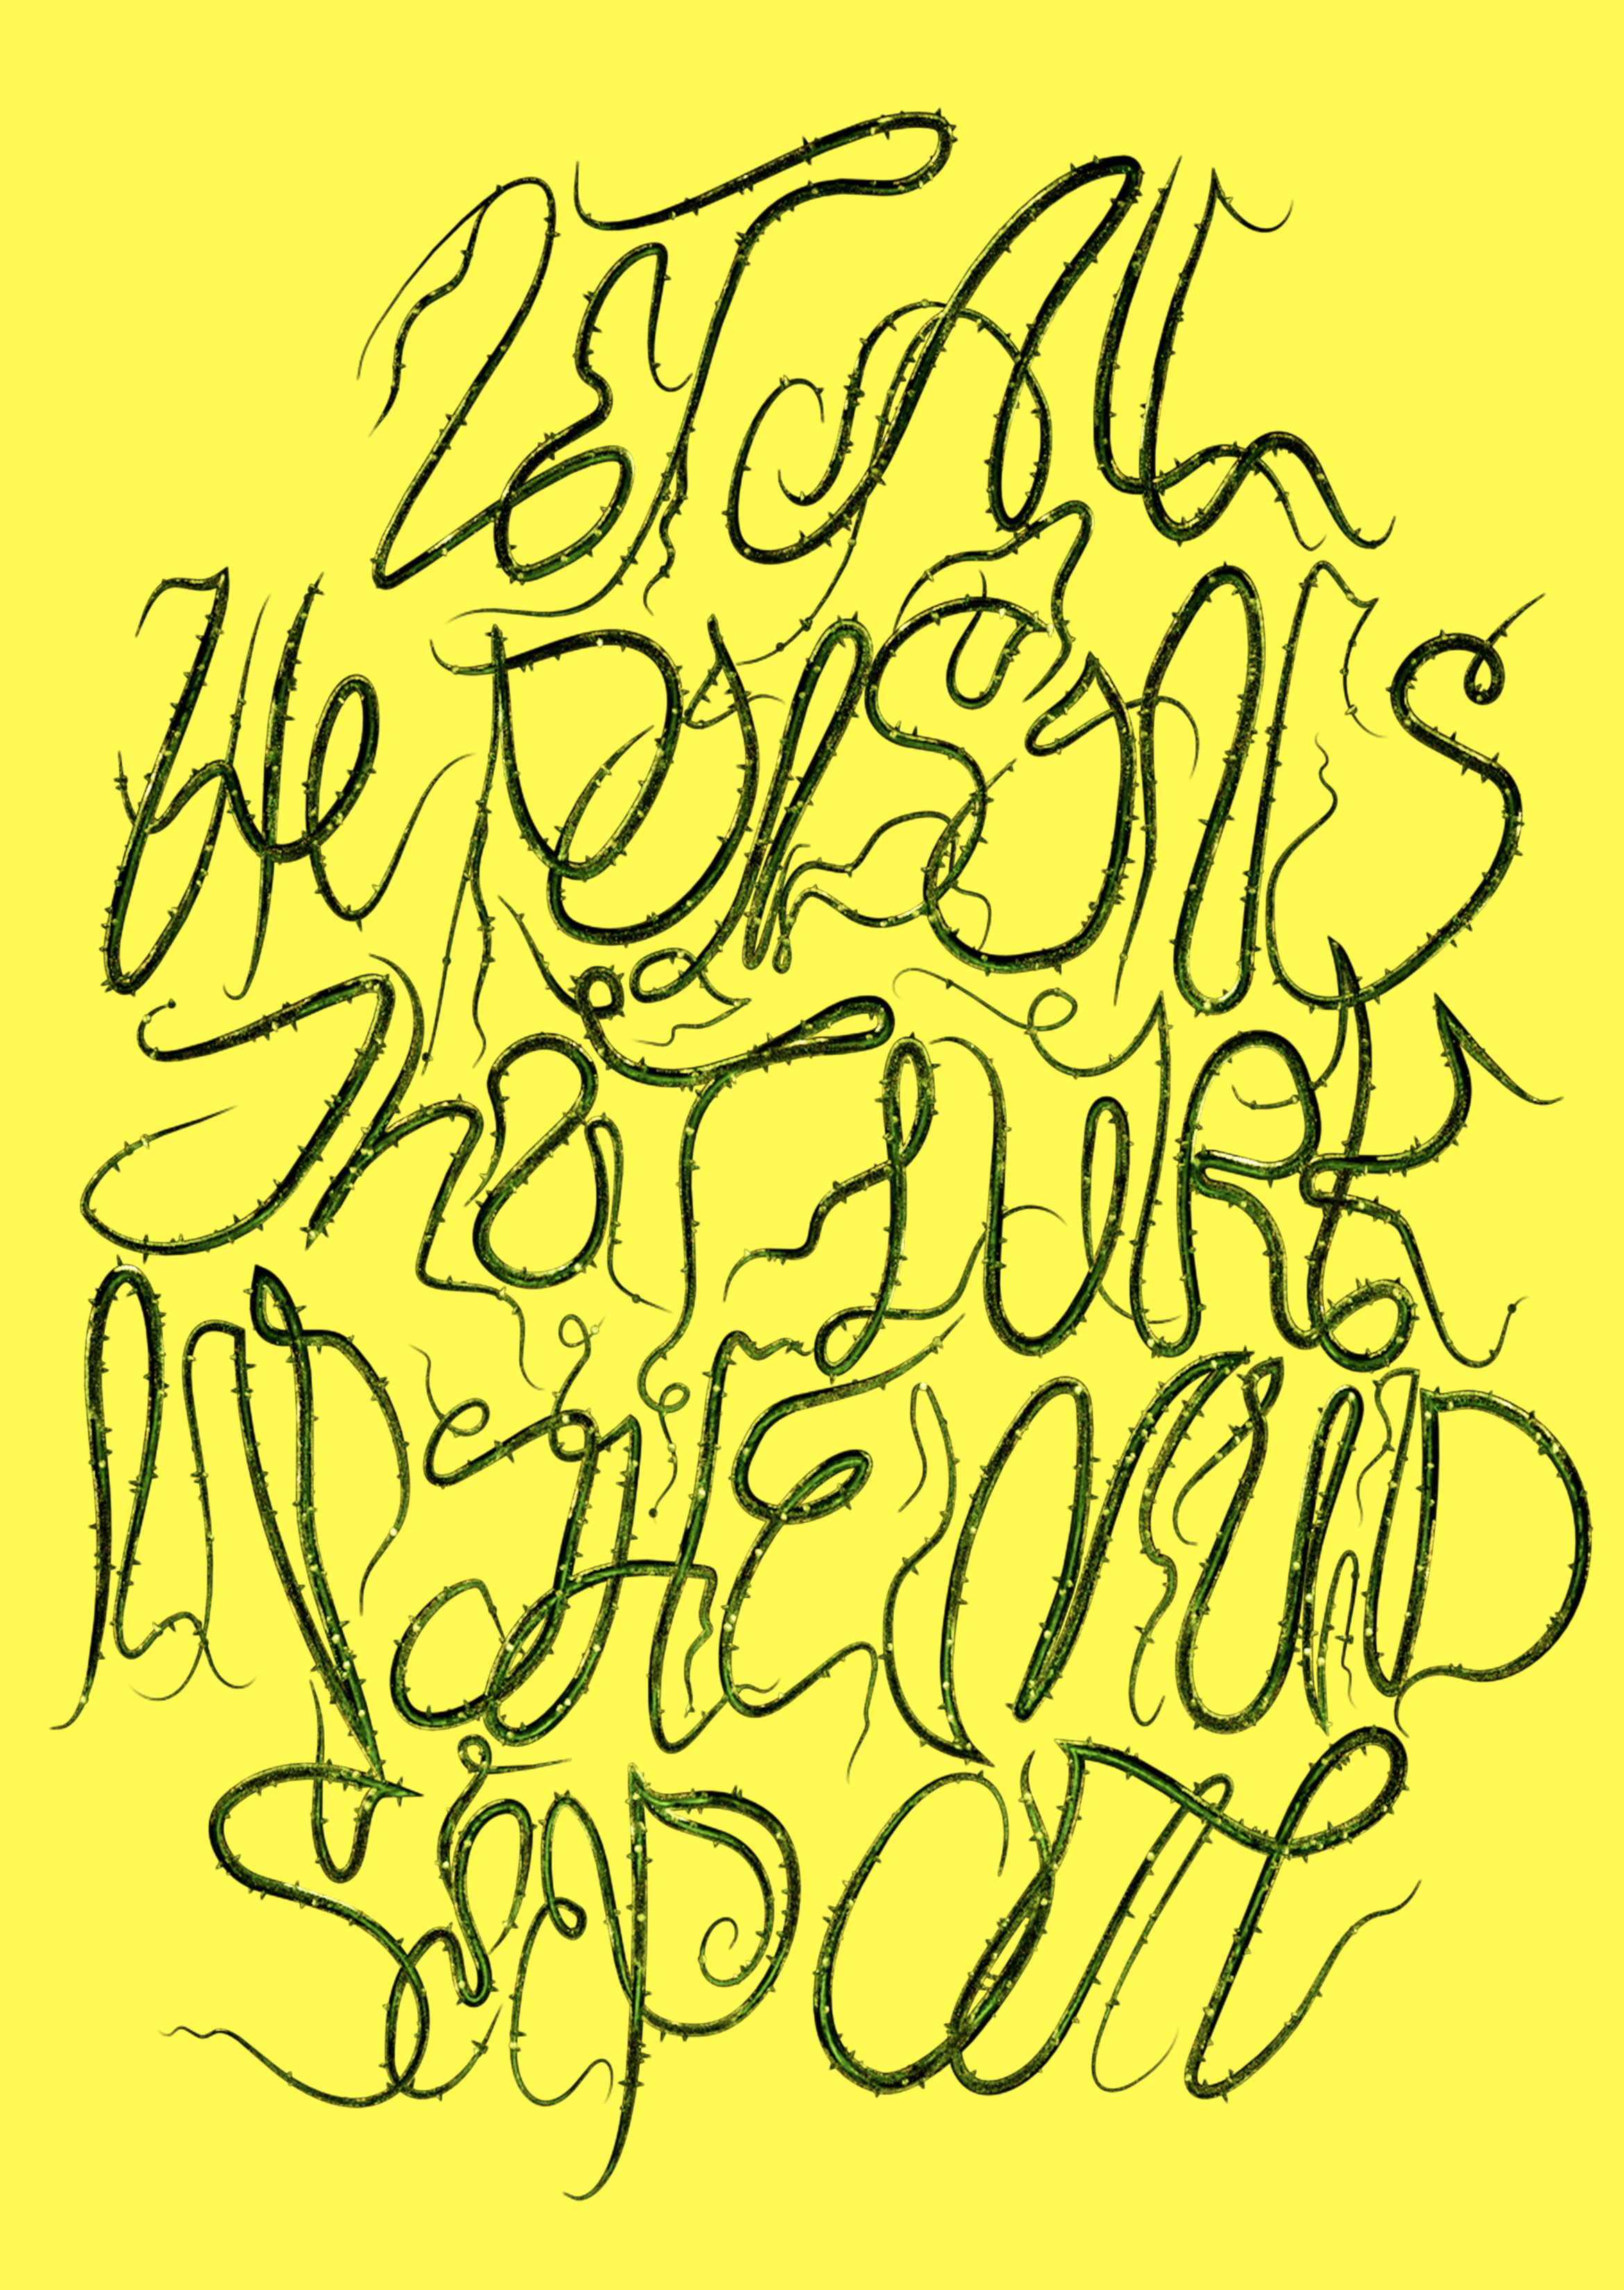 LET ALL
The POISONS
That LURK
IN THE MUD
Seep OUT